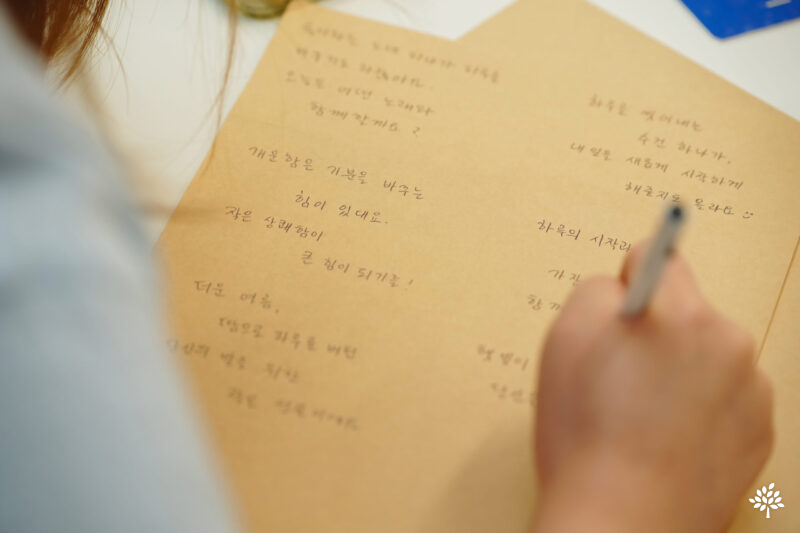 하나가 하루를
오늘도 어떤 노래와
함께 할까요?
개운함은 기분을 바꾸는
힘이 있대요.
작은 상쾌함이
큰 힘이 되기를!
더운 여름,
땀으로 하루를 버틴
당신의 밤을 위한
작은 선물이에요
하루를 씻어내는
수건 하나가,
내일을 새롭게 시작하게
해줄지도 몰라요
하루의 시작과
가장
함께
햇볕이
당신은